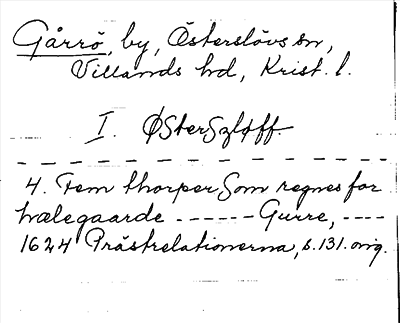 Gårrö, by, Österslövs sn,
Villands hd, Krist. l.
I. ØsterSzløff.
4. Fem thorper Som regnes for
hælegaarde ------ Gurre, ----
1624 Prästrelationerna, s. 131. orig.